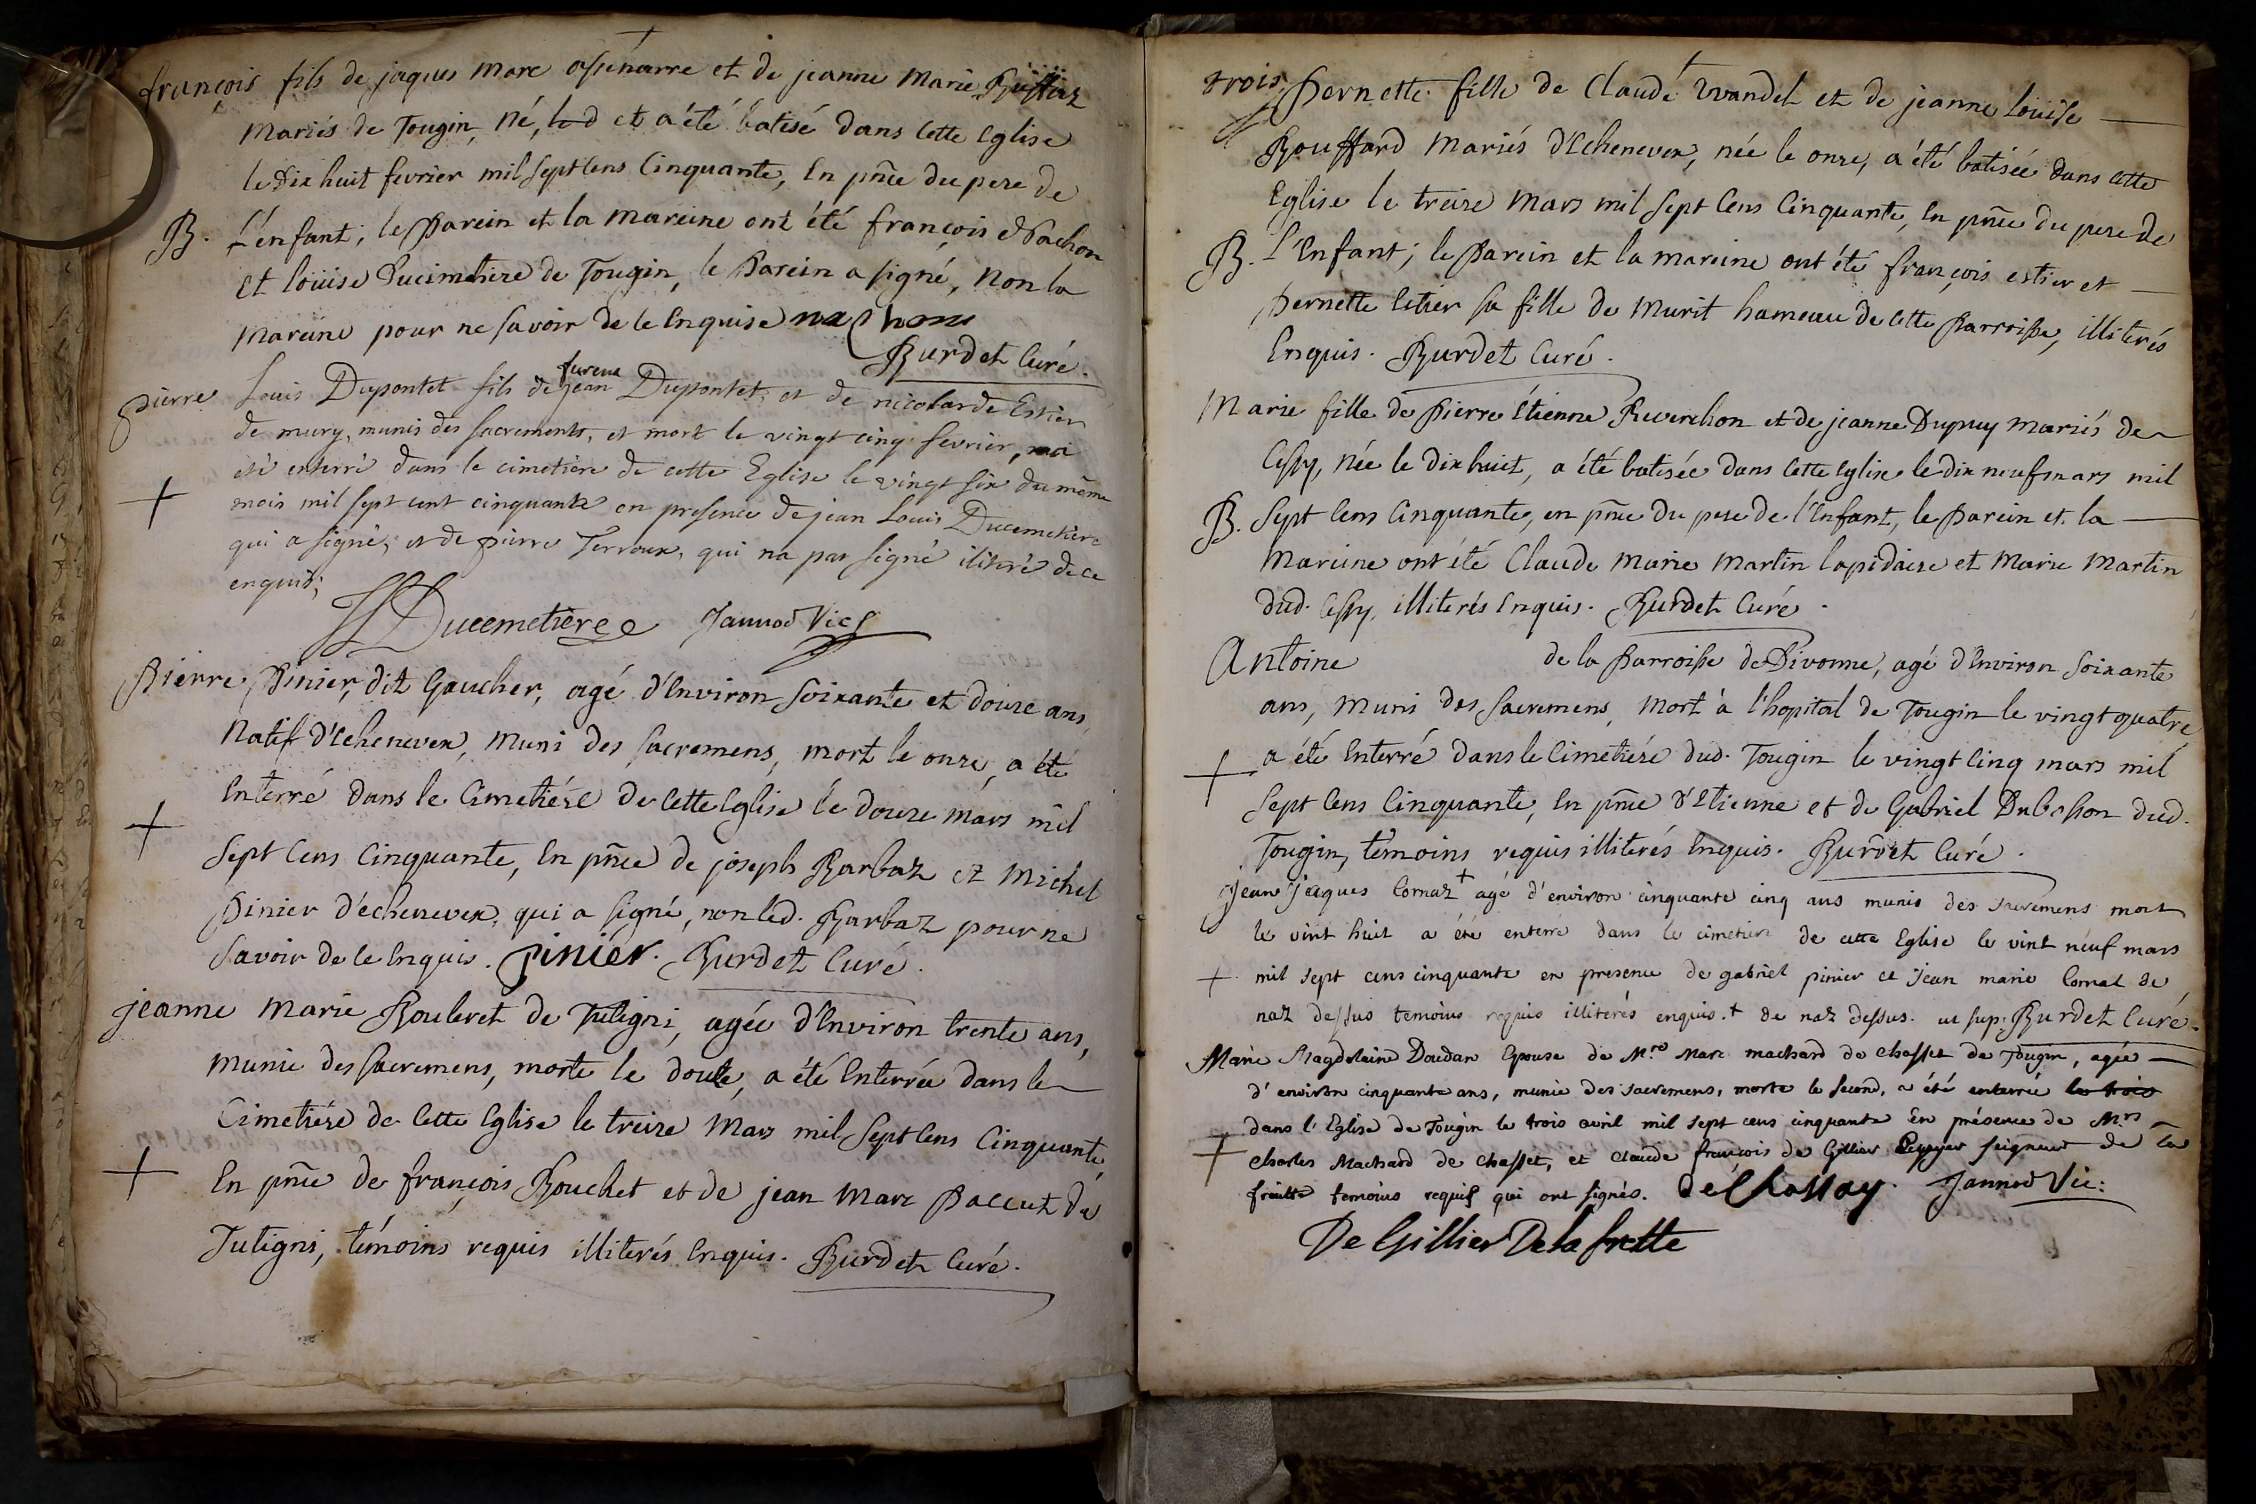 françois fils de jaques Marc et de jeanne Marie
Mariés de Tougin, né, led et a été batisé dans cette Eglise
le dix huit fevrier mil sept Cens Cinquante, En pñce du pere de
B. L'enfant; le Parein et la mareine ont été françois Nachon
et loüise Ducimetiere de Tougin, le Parein a signé, Non la
Mareine pour ne savoir de ce Enquise nachon
Burdet Curé.
fureue
Pierre Louis Dupontet fils de jean Dupontet, et de nicolarde Estier
de mury, munis des sacrements, et mort le vingt cinq fevrier, 
eté enterré dans le cimetière de cette Eglise le vingt six du même
+ mois mil sept cent cinquante en presence de jean Louis Ducemetière
qui a signé, et de pierre Terroux, qui na pas signé iliteré de ce
enquis;
Ducemetiere Jannod Vic
Pierre Pinier, dit Gaucher, agé d'Environ Soixante et douze ans,
Natif d'Echenevex, Muni des sacremens, mort le onze, a été
Enterré dans le Cimetiére de cette Eglise le douze mars mil
+ Sept Cens Cinquante, En pñce de joseph Barbaz et Michel
Pinier d'echenevex, qui a signé, non led. Barbaz pour ne
savoir de ce Enquis. pinier. Burdet Curé.
jeanne Marie Bouleret de Tutigni, agée d'Environ trente ans,
Munie des sacremens, morte le douze, a été Enterrée dans le
Cimetiére de cette Eglise le treize Mars mil Sept Cens Cinquante
+ En pñce de françois Bouchet et de jean Marc Paccut de
Tutigni, témoins requis illiterés Enquis. Burdet Curé.
trois
Pernette fille de Claude Wandel et de jeanne Louise
Bouffard Mariés d'Echenevex, née le onze, a été batisée dans cette
Eglise le treize Mars mil Sept Cens Cinquante, En pñce du pere de
B. l'Enfant; le Parein et la mareine ont été françois estier et
Pernette Estier sa fille de Murit hameau de cette Parroisse, illiterés
Enquis. Burdet Curé.
Marie fille de Pierre Etienne Reverchon et de jeanne Dupuy Mariés de
Cessy, née le dix huit, a été batisée dans cette Eglise le dix neuf mars mil
B. Sept Cens Cinquante, en pñce du pere de l'Enfant, le Parein et la
Mareine ont été Claude Marie Martin lapidaire et Marie Martin
dud. Cessy, illiterés Enquis. Burdet Curé.
Antoine de la Parroisse de Divonne, agé d'Environ Soixante
ans, Muni des Sacremens, Mort à l'hopital de Tougin le vingt quatre,
+ a été Enterré dans le Cimetiére dud. Tougin le vingt Cinq mars mil
Sept Cens Cinquante, En pñce d'Etienne et de Gabriel Dubesson dud.
Tougin, témoins requis illiterés Enquis. Burdet Curé.
Jean Jacques Cornaz + agé d'environ cinquante cinq ans munis des sacremens mort
le vint huit a été enterré dans le cimetiere de cette Eglise le vint neuf mars
+ mil sept cens cinquante en presence de gabriel pinier et jean marie Cornat de
naz dessus temoins requis illiterés enquis. + de naz dessus. ut sup: Burdet Curé.
Marie Magdelaine Doudan Epouse de M.re Marc machard de chasset de Tougin, agée
d'environ cinquante ans, munie des sacremens, morte le second, a été enterrée le trois
dans l'Eglise de Tougin le trois avril mil sept cens cinquante En présence de M.rs
+ Charles Machard de Chasset, et Claude françois de Gillier Ecuyer seigneur de la
frette temoins requis qui ont signés. de Chassay. Jannod Vic:
De Gillier De la frette